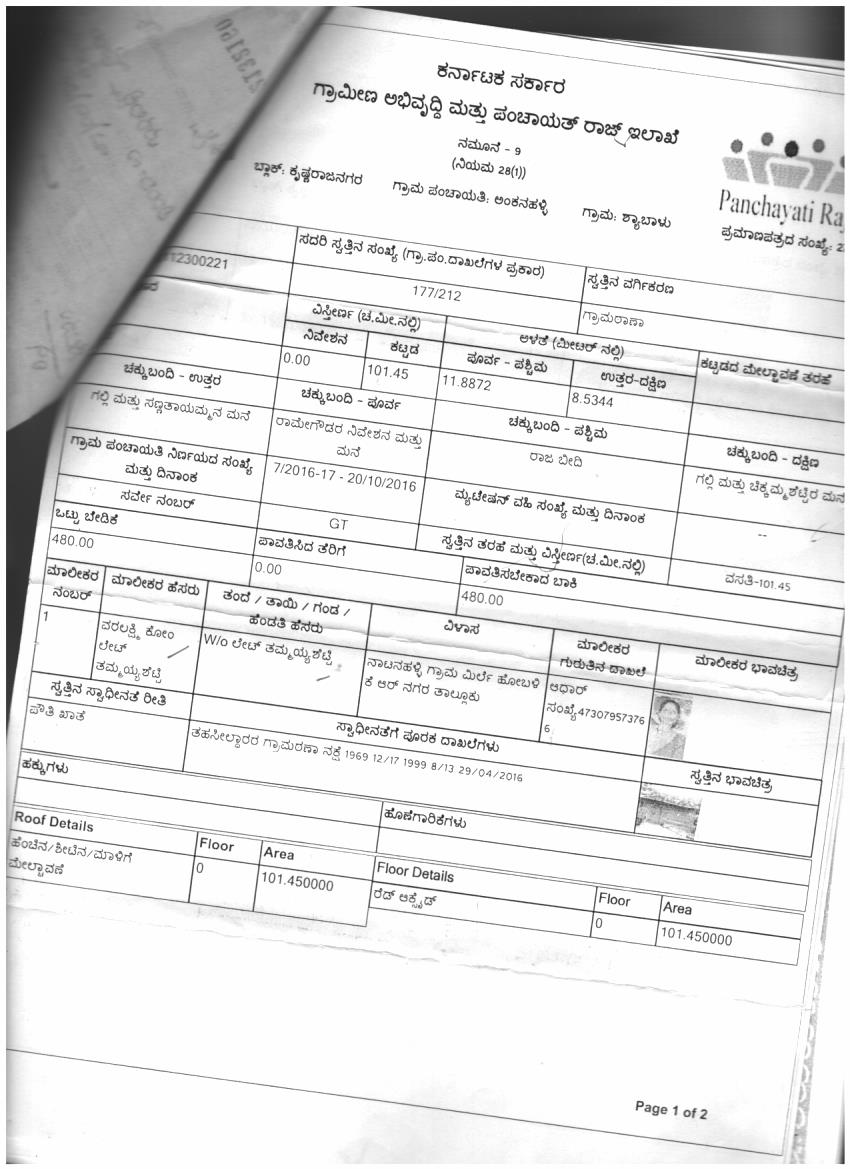 ಕರ್ನಾಟಕ ಸರ್ಕಾರ
ಗ್ರಾಮೀಣ ಅಭಿವೃದ್ಧಿ ಮತ್ತು ಪಂಚಾಯತ್ ರಾಜ್ ಇಲಾಖೆ
ನಮೂನೆ - 9
(ನಿಯಮ 28(1))
ಬ್ಲಾಕ್: ಕೃಷ್ಣರಾಜನಗರ ಗ್ರಾಮ ಪಂಚಾಯತಿ: ಅಂಕನಹಳ್ಳಿ ಗ್ರಾಮ: ಶ್ಯಾಬಾಳು
Panchayati Ra
ಪ್ರಮಾಣಪತ್ರದ ಸಂಖ್ಯೆ:
ಸದರಿ ಸ್ವತ್ತಿನ ಸಂಖ್ಯೆ (ಗ್ರಾ.ಪಂ.ದಾಖಲೆಗಳ ಪ್ರಕಾರ) ಸ್ವತ್ತಿನ ವರ್ಗೀಕರಣ
12300221 177/212 ಗ್ರಾಮಠಾಣಾ
ವಿಸ್ತೀರ್ಣ (ಚ.ಮೀ.ನಲ್ಲಿ) ಅಳತೆ (ಮೀಟರ್ ನಲ್ಲಿ) ಕಟ್ಟಡದ ಮೇಲ್ಛಾವಣೆ ತರಹೆ
ನಿವೇಶನ ಕಟ್ಟಡ ಪೂರ್ವ - ಪಶ್ಚಿಮ ಉತ್ತರ-ದಕ್ಷಿಣ
0.00 101.45 11.8872 8.5344
ಚಕ್ಕುಬಂದಿ - ಉತ್ತರ ಚಕ್ಕುಬಂದಿ - ಪೂರ್ವ ಚಕ್ಕುಬಂದಿ - ಪಶ್ಚಿಮ ಚಕ್ಕುಬಂದಿ - ದಕ್ಷಿಣ
ಗಲ್ಲಿ ಮತ್ತು ಸಣ್ಣತಾಯಮ್ಮನ ಮನೆ ರಾಮೇಗೌಡರ ನಿವೇಶನ ಮತ್ತು ಮನೆ ರಾಜ ಬೀದಿ ಗಲ್ಲಿ ಮತ್ತು ಚಿಕ್ಕಮ್ಮಶೆಟ್ಟಿರ ಮನೆ
ಗ್ರಾಮ ಪಂಚಾಯತಿ ನಿರ್ಣಯದ ಸಂಖ್ಯೆ ಮತ್ತು ದಿನಾಂಕ 7/2016-17 - 20/10/2016 ಮ್ಯುಟೇಷನ್ ವಹಿ ಸಂಖ್ಯೆ ಮತ್ತು ದಿನಾಂಕ --
ಸರ್ವೇ ನಂಬರ್ GT ಸ್ವತ್ತಿನ ತರಹೆ ಮತ್ತು ವಿಸ್ತೀರ್ಣ(ಚ.ಮೀ.ನಲ್ಲಿ) ವಸತಿ-101.45
ಒಟ್ಟು ಬೇಡಿಕೆ ಪಾವತಿಸಿದ ತೆರಿಗೆ ಪಾವತಿಸಬೇಕಾದ ಬಾಕಿ
480.00 0.00 480.00
ಮಾಲೀಕರ ನಂಬರ್ ಮಾಲೀಕರ ಹೆಸರು ತಂದೆ / ತಾಯಿ / ಗಂಡ / ಹೆಂಡತಿ ಹೆಸರು ವಿಳಾಸ ಮಾಲೀಕರ ಗುರುತಿನ ದಾಖಲೆ ಮಾಲೀಕರ ಭಾವಚಿತ್ರ
1 ವರಲಕ್ಷ್ಮಿ ಕೋಂ ಲೇಟ್ ತಮ್ಮಯ್ಯಶೆಟ್ಟಿ W/o ಲೇಟ್ ತಮ್ಮಯ್ಯಶೆಟ್ಟಿ ನಾಟನಹಳ್ಳಿ ಗ್ರಾಮ ಮಿರ್ಲೆ ಹೋಬಳಿ ಕೆ ಆರ್ ನಗರ ತಾಲ್ಲೂಕು ಆಧಾರ್ ಸಂಖ್ಯೆ47307957376 6
ಸ್ವತ್ತಿನ ಸ್ವಾಧೀನತೆ ರೀತಿ ಸ್ವಾಧೀನತೆಗೆ ಪೂರಕ ದಾಖಲೆಗಳು ಸ್ವತ್ತಿನ ಭಾವಚಿತ್ರ
ಪೌತಿ ಖಾತೆ ತಹಸೀಲ್ದಾರರ ಗ್ರಾಮಠಾಣಾ ನಕ್ಷೆ 1969 12/17 1999 8/13 29/04/2016
ಹಕ್ಕುಗಳು ಹೊಣೆಗಾರಿಕೆಗಳು
Roof Details Floor Area Floor Details Floor Area
ಹೆಂಚಿನ/ಶೀಟಿನ/ಮಾಳಿಗೆ ಮೇಲ್ಛಾವಣೆ 0 101.450000 ರೆಡ್ ಆಕ್ಸೈಡ್ 0 101.450000
Page 1 of 2